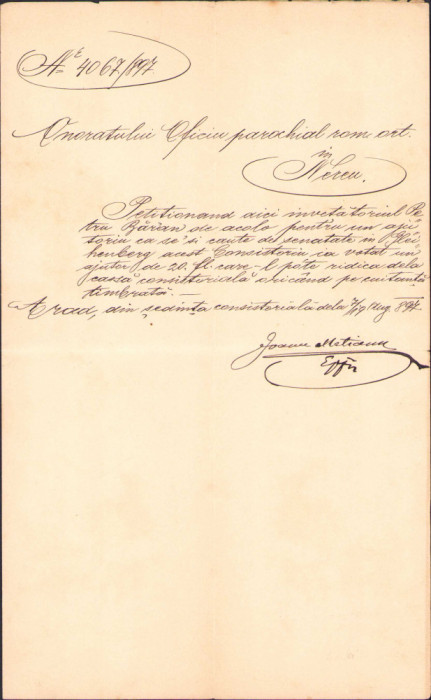 Nrẹ 4067/897
Onoratului Oficiu parochial rom. ort.
în
Nereu.
Petitionand aici invetatoriul Pe-
tru Băran de acolo pentru un aju-
toriu ca se si caute de senatate in Glei-
henberg acest Consistoriu ia votat un
ajutor de 20. fl. care-l pote ridica dela
cassa consistorială oricând pe cuitantă
timbrată. —
Arad, din sedinta consistorială dela 7/19 Aug. 897.
Ioanu Metianu
Eppu